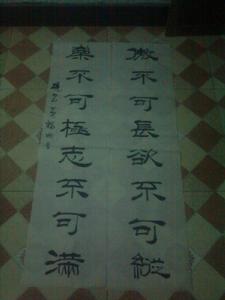 傲不可長欲不可縱
樂不可極志不可滿